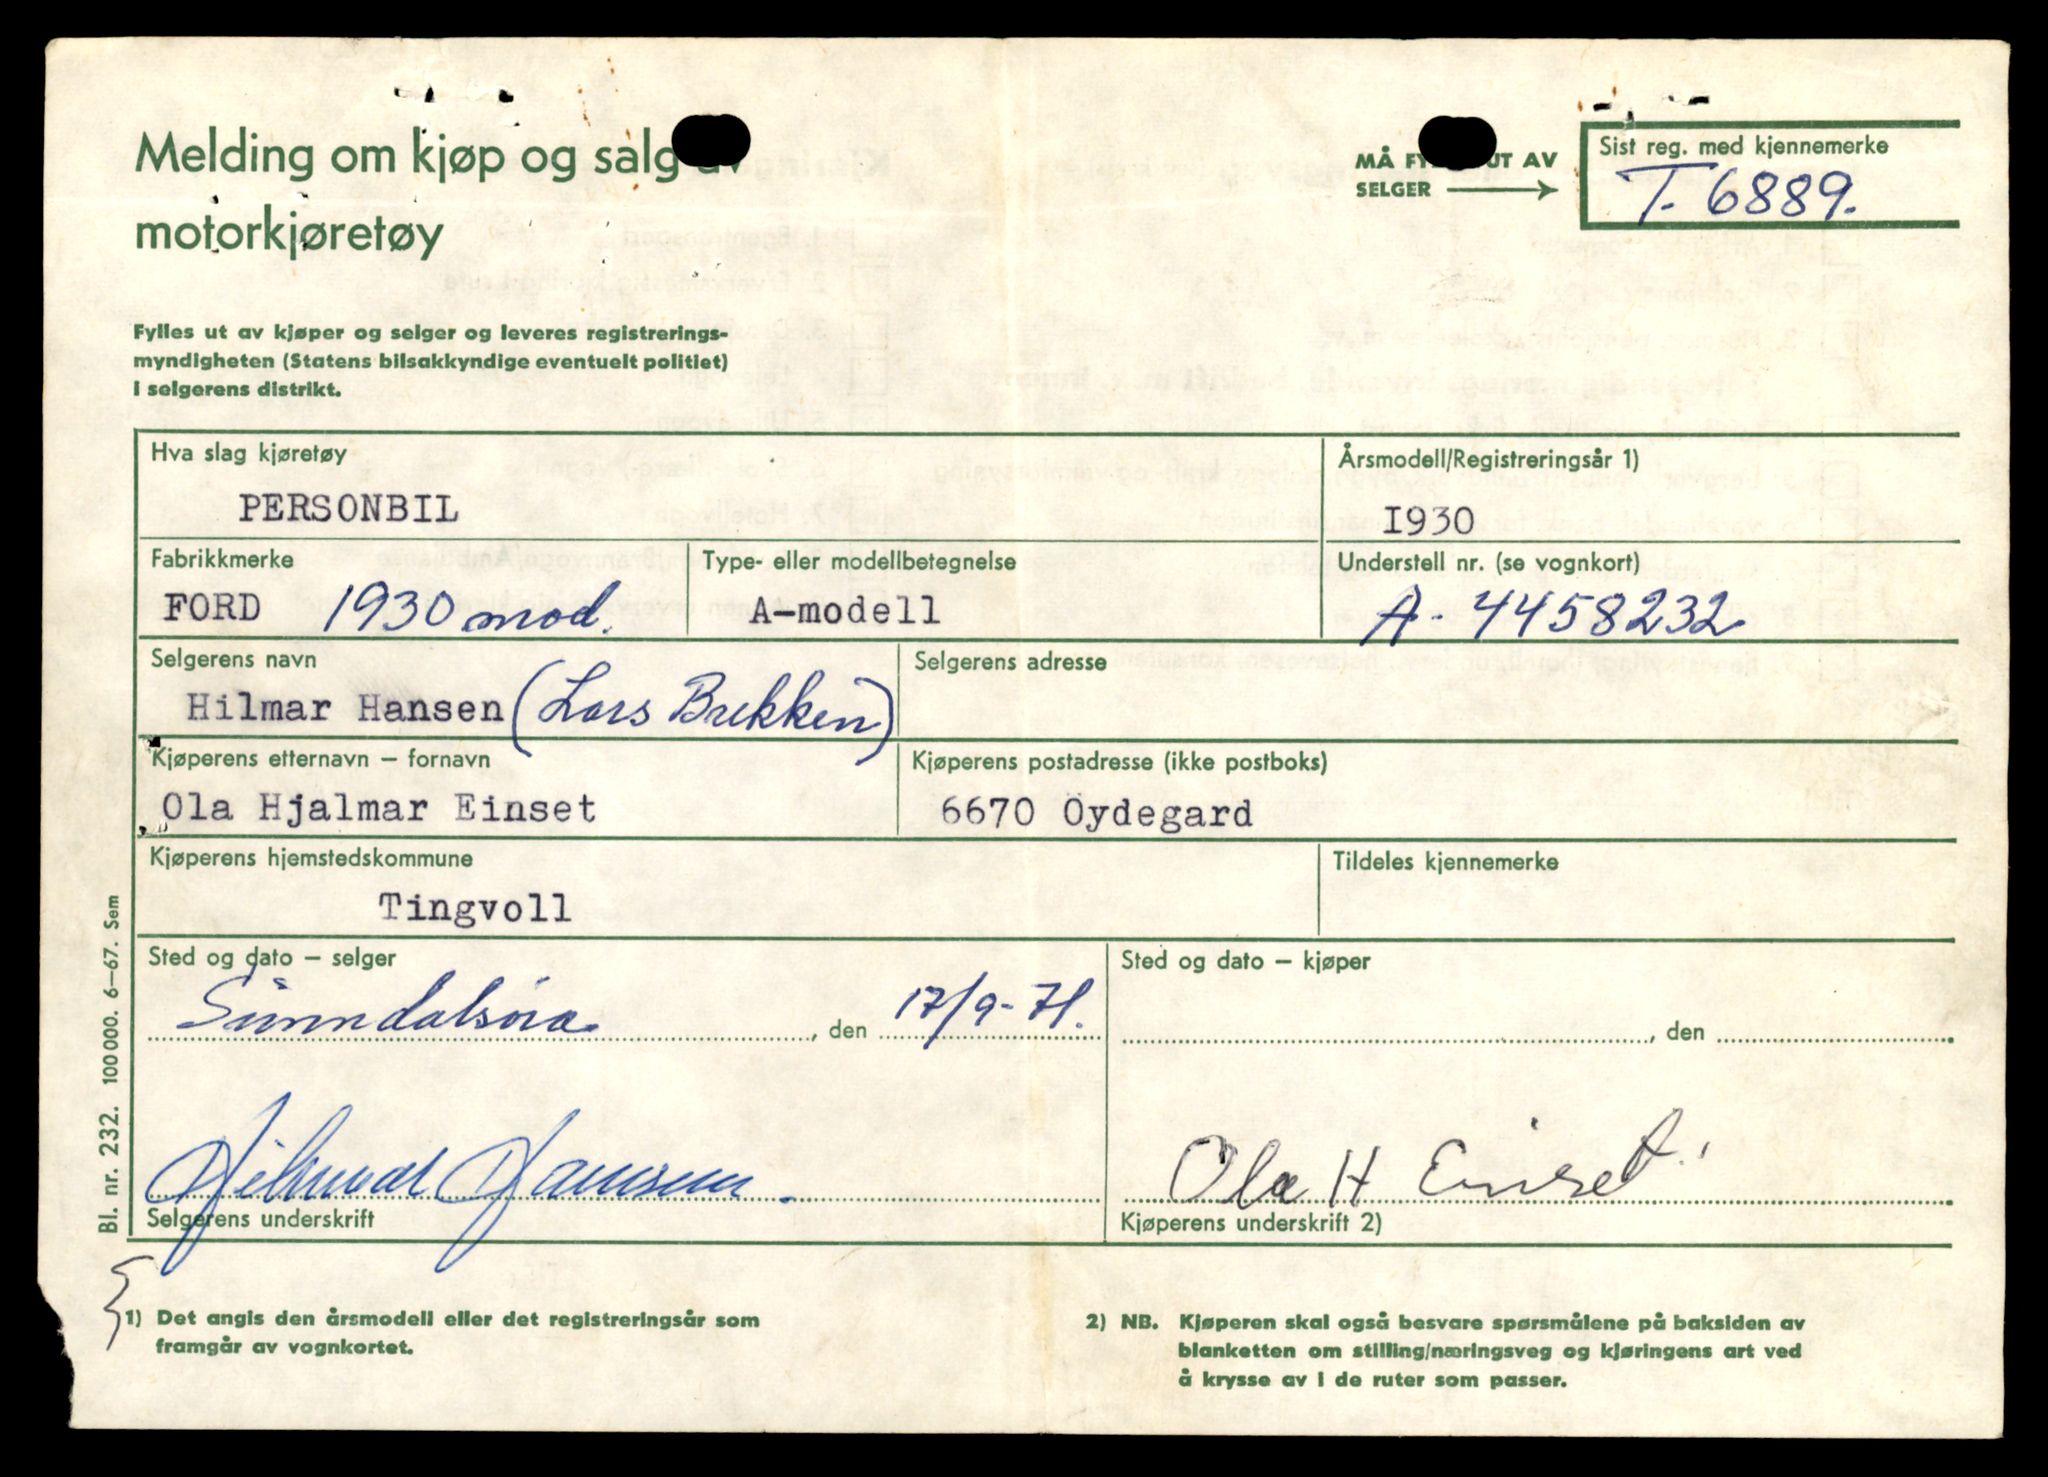 Melding om kjøp og salg av
motorkjøretøy
MÅ FYLLES UT AV
SELGER
Sist reg. med kjennemerke
T-6889.
Fylles ut av kjøper og selger og leveres registrerings-
myndigheten (Statens bilsakkyndige eventuelt politiet)
i selgerens distrikt.
Hva slag kjøretøy
PERSONBIL
Årsmodell/Registreringsår 1)
I930
Fabrikkmerke
FORD 1930 mod.
Type- eller modellbetegnelse
A-modell
Understell nr. (se vognkort)
A- 4458232
Selgerens navn
Hilmar Hansen (Lars Brekken)
Selgerens adresse
Kjøperens etternavn – fornavn
Ola Hjalmar Einset
Kjøperens postadresse (ikke postboks)
6670 Öydegard
Kjøperens hjemstedskommune
Tingvoll
Tildeles kjennemerke
Sted og dato – selger
Sunndalsøra, den 17/9-71.
Sted og dato – kjøper
, den
Hilmar Hansen.
Selgerens underskrift
Ola H Einset.
Kjøperens underskrift 2)
Bl. nr. 232. 100000. 6–67. Sem
1) Det angis den årsmodell eller det registreringsår som
framgår av vognkortet.
2) NB. Kjøperen skal også besvare spørsmålene på baksiden av
blanketten om stilling/næringsveg og kjøringens art ved
å krysse av i de ruter som passer.